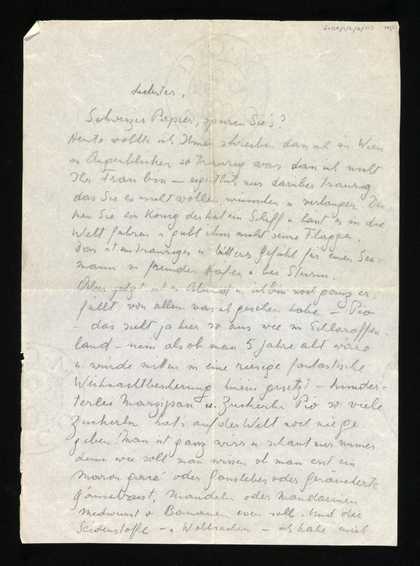 Liebster,
Schweizer Papier, spüren Sie's?
Heute wollte ich Ihnen schreiben dass ich in Wien
in Augenblicken so traurig war dass ich nicht
Ihr Frau bin — eigentlich nur darüber traurig
das Sie es nicht wollen, wünschen u verlangen.
Sie ein König der hat ein Schiff u lässt es in die
Welt fahren u gibt ihm nicht seine Flagge.
Das ist ein trauriges u bitteres Gefühl für einen See-
mann in fremden Häfen u bei Sturm.
Aber jetzt ist es u ich bin noch ganz er-
füllt von allem was ich gesehen habe — Pio
— das sieht ja hier so aus wie im Schlaraffen
land — nein als ob man 5 Jahre alt wäre
u würde mitten in eine riesige fantastische
Weihnachtsbescherung hinein gesetzt — hunder-
terlei Marzipan u. Zuckerln Pio so viele
Zuckerln hat's auf der Welt noch nie ge
geben. Man ist ganz wirr u schaut nur immer
denn wie soll man wissen ob man erst ein
Maron glacé oder Gansleber oder geräucherte
Gänsebrust, Mandeln oder Mandarinen
oder Bananen essen soll. Und die
Seidenstoffe — u Wollsachen — ich habe mich